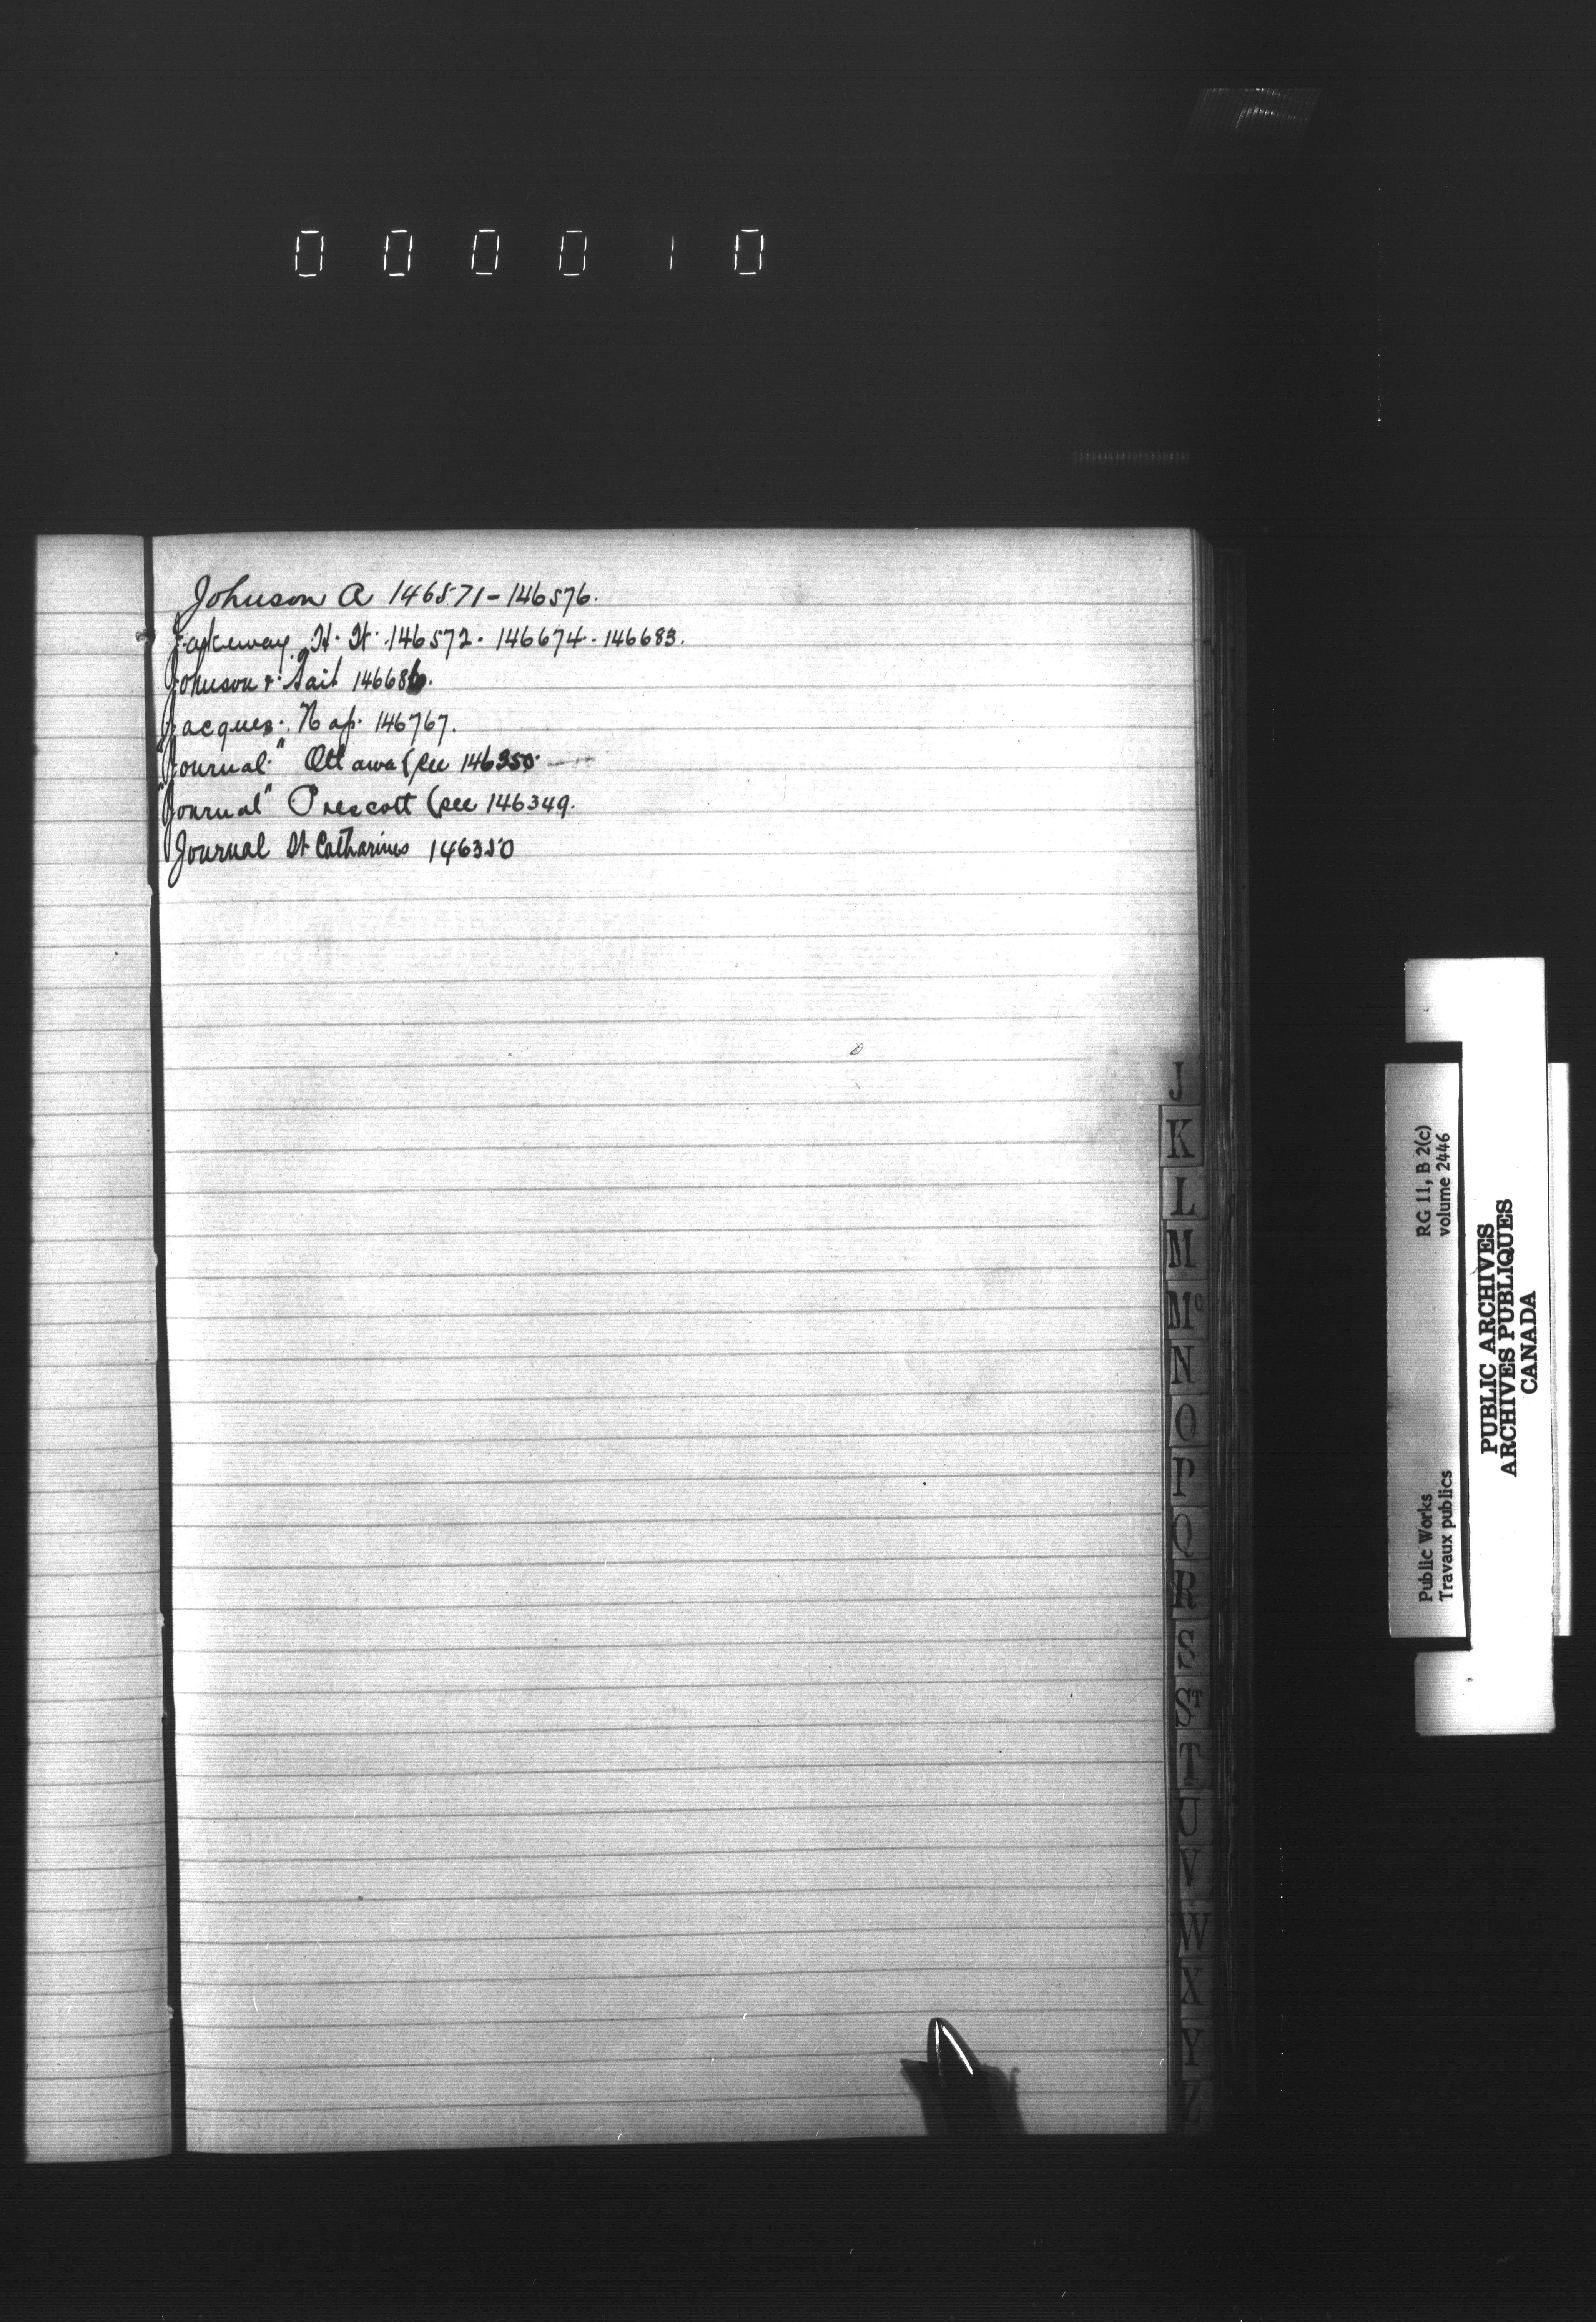 000010
Johnson A 146571-146576.
Jakeway H. H. 146572. 146674-146683.
Johnson & Tait 146686.
Jacques. Nap. 146767.
"Journal" Ottawa (see 146350
"Journal" Prescott (see 146349.
Journal St Catharines 146350
J
K
L
M
Mc
N
O
P
Q
R
S
ST
T
U
V
W
X
Y
Z
Public Works RG 11, B 2(c)
Travaux publics volume 2446
PUBLIC ARCHIVES
ARCHIVES PUBLIQUES
CANADA